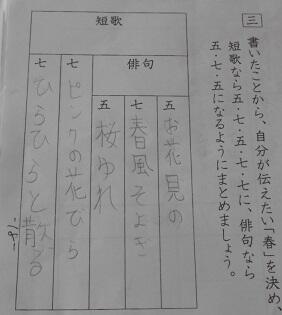 三 書いたことから、自分が伝えたい「春」を決め、
短歌なら五・七・五・七・七に、俳句なら
五・七・五になるようにまとめましょう。
短歌
俳句
五 お花見の
七 春風そよぎ
五 桜ゆれ
七 ピンクの花びら
七 ひらひらと散る